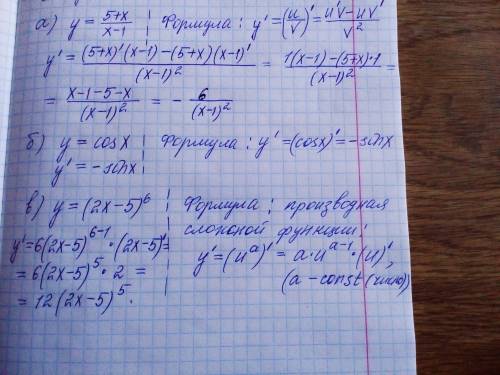 а) y = (5+x)/(x-1) | Формула: y' = (u/v)' = (u'v - uv')/v²
y' = ((5+x)'(x-1) - (5+x)(x-1)')/(x-1)² = (1(x-1) - (5+x)·1)/(x-1)² =
= (x-1-5-x)/(x-1)² = - 6/(x-1)²
б) y = cosx | Формула: y' = (cosx)' = -sinx
y' = -sinx
в) y = (2x-5)⁶ | Формула: производная
сложной функции:
y' = 6(2x-5)⁶⁻¹·(2x-5)' =
y' = (uᵃ)' = a·uᵃ⁻¹·(u)',
= 6(2x-5)⁵·2 =
(a - const (число))
= 12(2x-5)⁵.